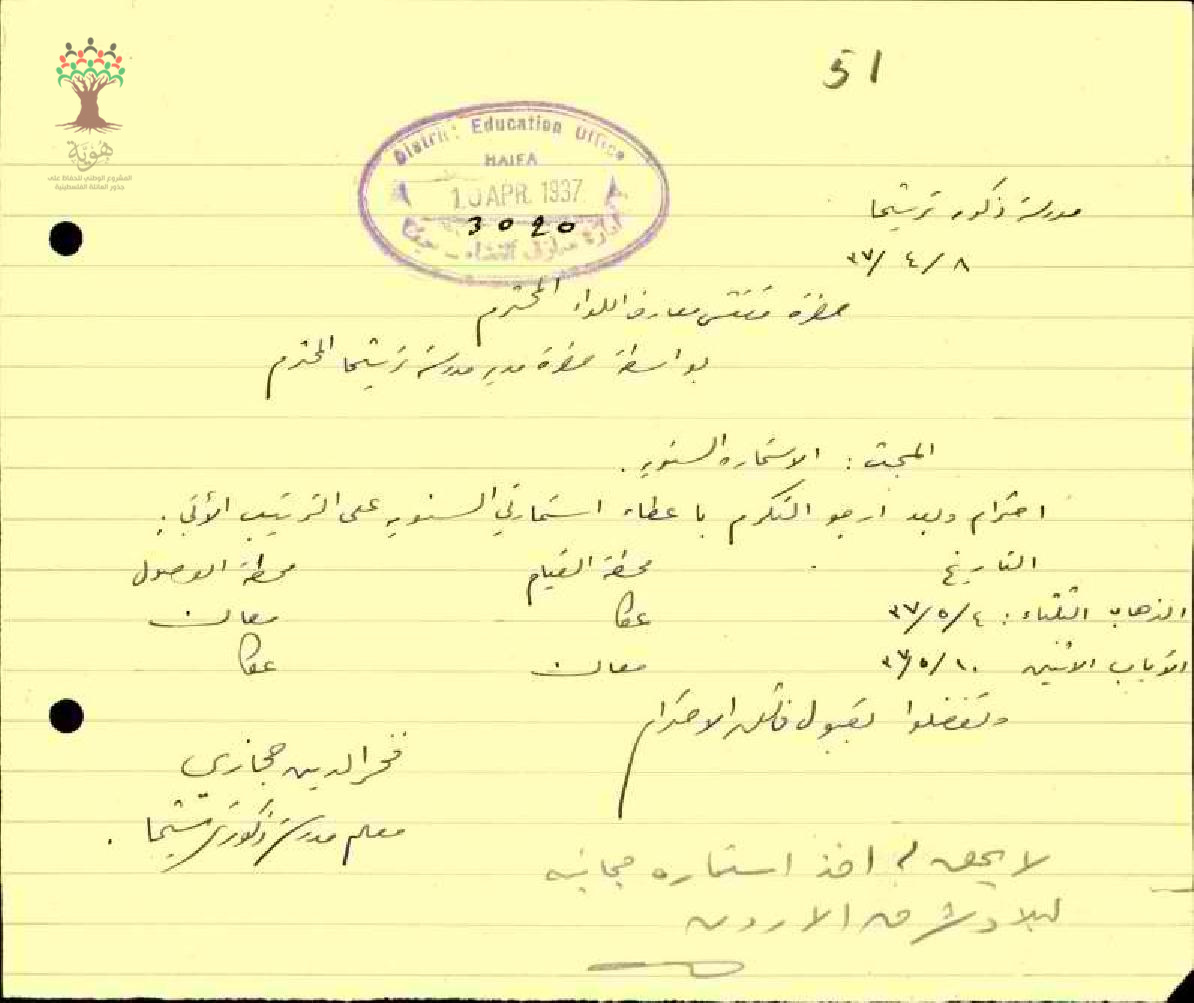 51
هوية
المشروع الوطني للحفاظ على
جذور العائلة الفلسطينية
District Education Office
HAIFA
10 APR. 1937
3020
ادارة معارف اللواء - حيفا
مدرسة ذكور ترشيحا
٣٧/٤/٨
حضرة مفتش معارف اللواء المحترم
بواسطة حضرة مدير مدرسة ترشيحا المحترم
المبحث : الاستمارة السنويه .
احترام وبعد ارجو التكرم باعطاء استمارتي السنويه على الترتيب الأتي :
التاريخ محطة القيام محطة الوصول
الذهاب الثلثاء : ٣٧/٥/٤ عكا معان
الأياب الاثنين ٣٧/٥/١٠ معان عكا
وتفضلوا بقبول فائق الاحترام
فخر الدين حجازي
معلم مدرسة ذكور ترشيحا .
لا يحق له اخذ استماره مجانيه
لبلاد شرق الاردن